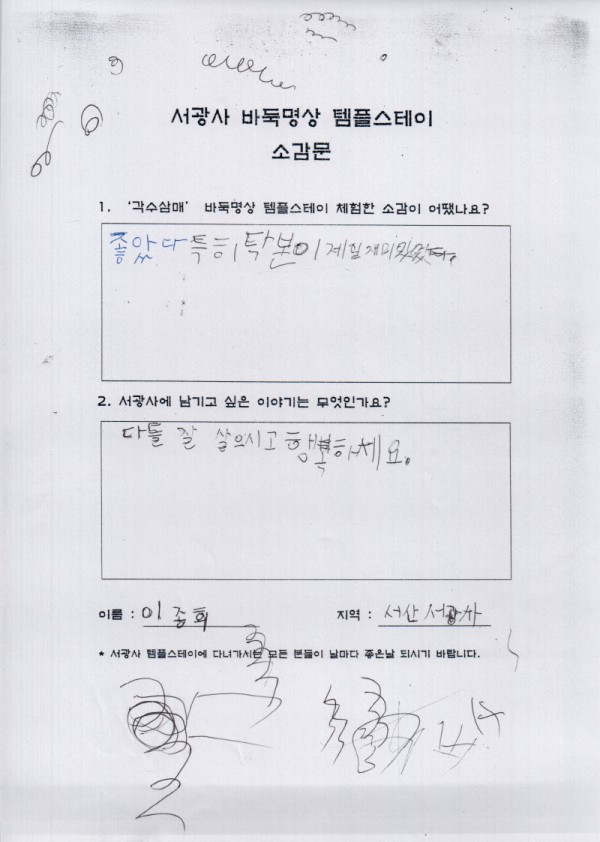 서광사 바둑명상 템플스테이
소감문
1. '각수삼매' 바둑명상 템플스테이 체험한 소감이 어땠나요?
좋았다 특히 탁본이 제일 재미있었다.
2. 서광사에 남기고 싶은 이야기는 무엇인가요?
다들 잘 살으시고 행복하세요.
이름 : 이종회
지역 : 서산 서광사
* 서광사 템플스테이에 다녀가시는 모든 분들이 날마다 좋은날 되시기 바랍니다.